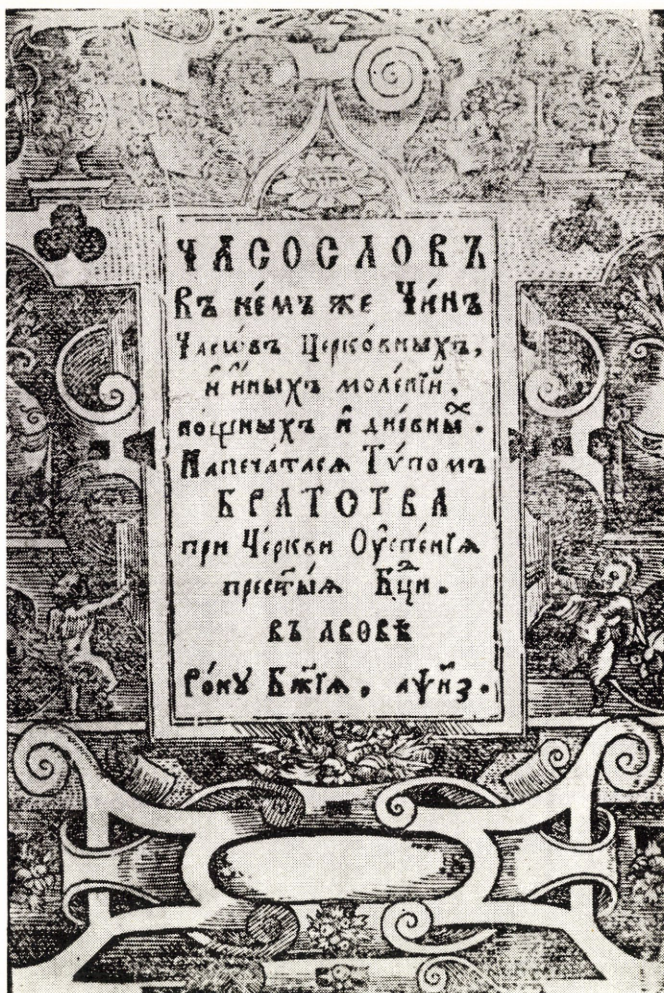 ЧАСОСЛОВЪ
Въ не́мъ же Чи́нъ
Часѡ́въ Церко́вныхъ,
и҆ и҆́ныхъ моле́нїй.
но́щныхъ и҆ дне́вныⷯ.
Напеча́тасѧ Ту́помъ
БРАТСТВА
при Це́ркви Оу҆спе́нїѧ
прест҃ы́ѧ Бцⷣи.
въ Лвовѣ
Ро́кꙋ Бж҃їѧ, ҂аѱн҃з.